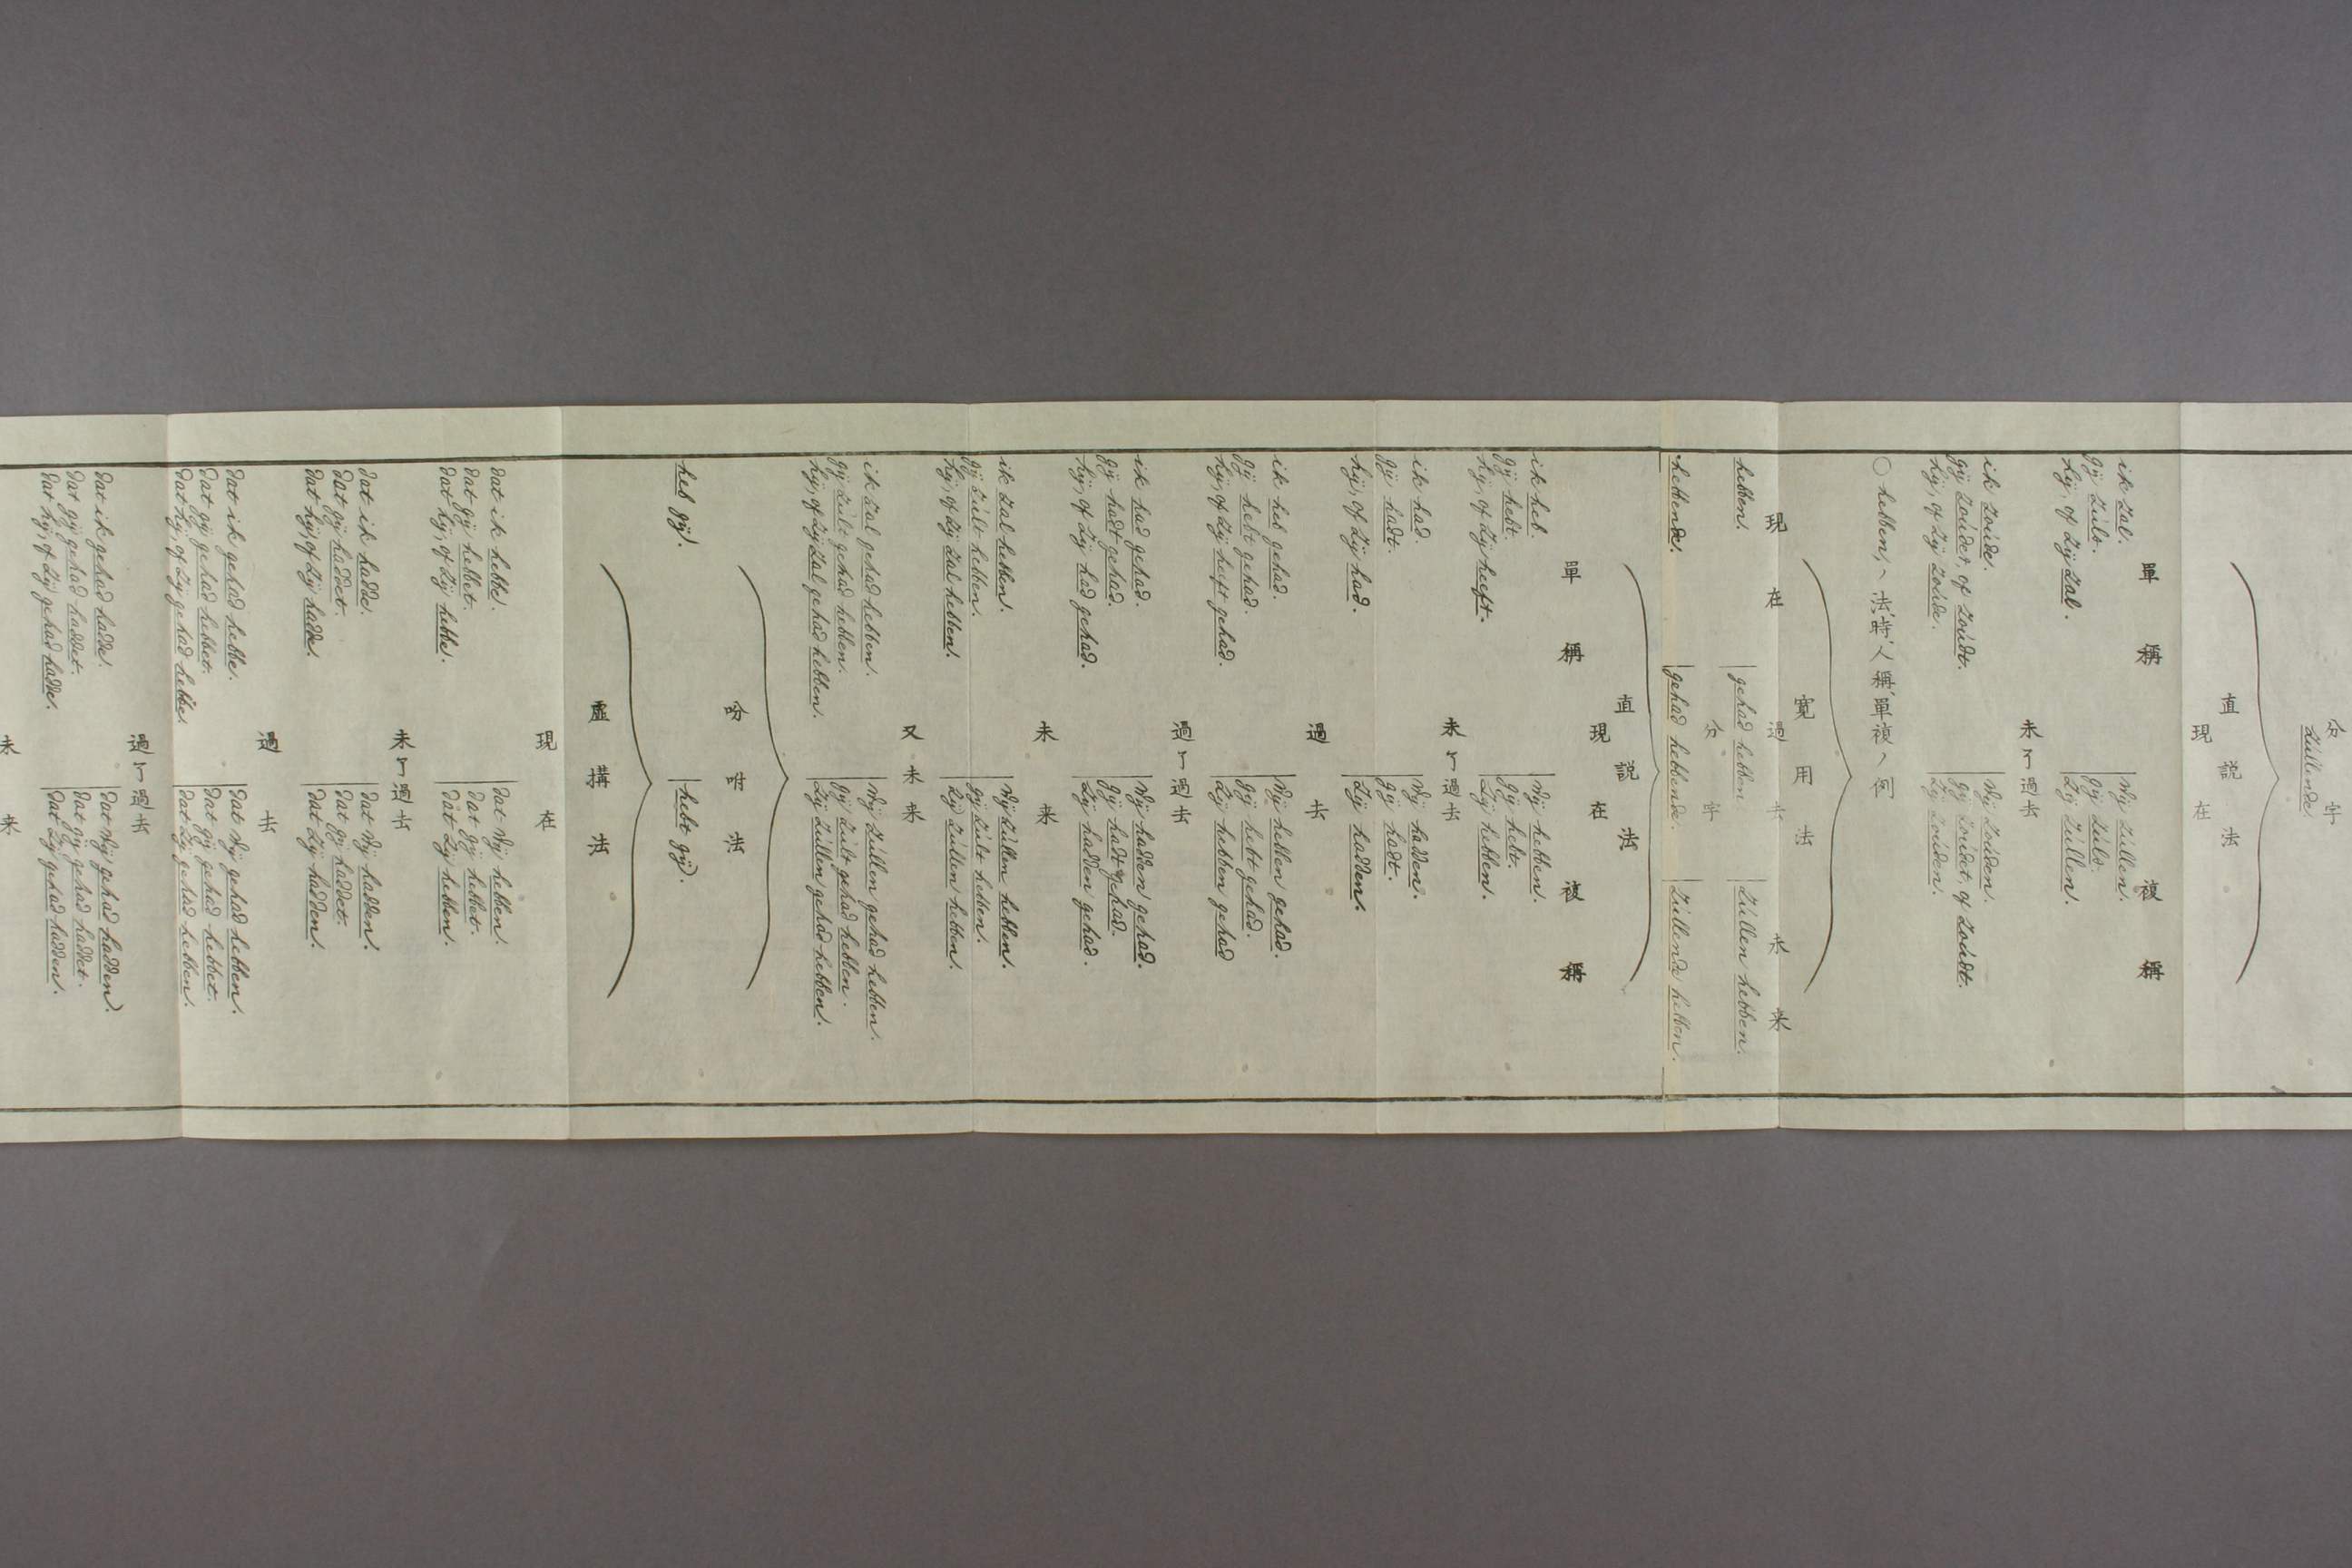 分字
zúllende.
直説法
現在
單稱 複稱
ik zal. wij zúllen.
gij zúlt. gij zúlt.
hij, of zij zal. zij zúllen.
未了過去
ik zoúde. wij zoúden.
gij zoúdet, of zoúdt. gij zoúdet, of zoúdt.
hij, of zij zoúde. zij zoúden.
○hebben、法、時、人稱、單複ノ例
寛用法
現在 過去 未来
hebben. gehad hebben zúllen hebben.
分字
hebbende. gehad hebbende. zúllende hebben.
直説法
現在
單稱 複稱
ik heb. wij hebben.
gij hebt. gij hebt.
hij, of zij heeft. zij hebben.
未了過去
ik had. wij hadden.
gij hadt. gij hadt.
hij, of zij had. zij hadden.
過去
ik heb gehad. wij hebben gehad.
gij hebt gehad. gij hebt gehad.
hij, of zij heeft gehad. zij hebben gehad
過了過去
ik had gehad. wij hadden gehad.
gij hadt gehad. gij hadt gehad.
hij, of zij had gehad. zij hadden gehad.
未来
ik zal hebben. wij zúllen hebben.
gij zúlt hebben. gij zúlt hebben.
hij, of zij zal hebben. zij zúllen hebben.
又未来
ik zal gehad hebben. wij zúllen gehad hebben.
gij zúlt gehad hebben. gij zúlt gehad hebben.
hij, of zij zal gehad hebben. zij zúllen gehad hebben.
吩咐法
heb gij. hebt gij.
虚構法
現在
dat ik hebbe. dat wij hebben.
dat gij hebbet. dat gij hebbet.
dat hij, of zij hebbe. dat zij hebben.
未了過去
dat ik hadde. dat wij hadden.
dat gij haddet. dat gij haddet.
dat hij, of zij hadde. dat zij hadden.
過去
dat ik gehad hebbe. dat wij gehad hebben.
dat gij gehad hebbet. dat gij gehad hebbet.
dat hij, of zij gehad hebbe. dat zij gehad hebben.
過了過去
dat ik gehad hadde. dat wij gehad hadden.
dat gij gehad haddet. dat gij gehad haddet.
dat hij, of zij gehad hadde. dat zij gehad hadden.
未来